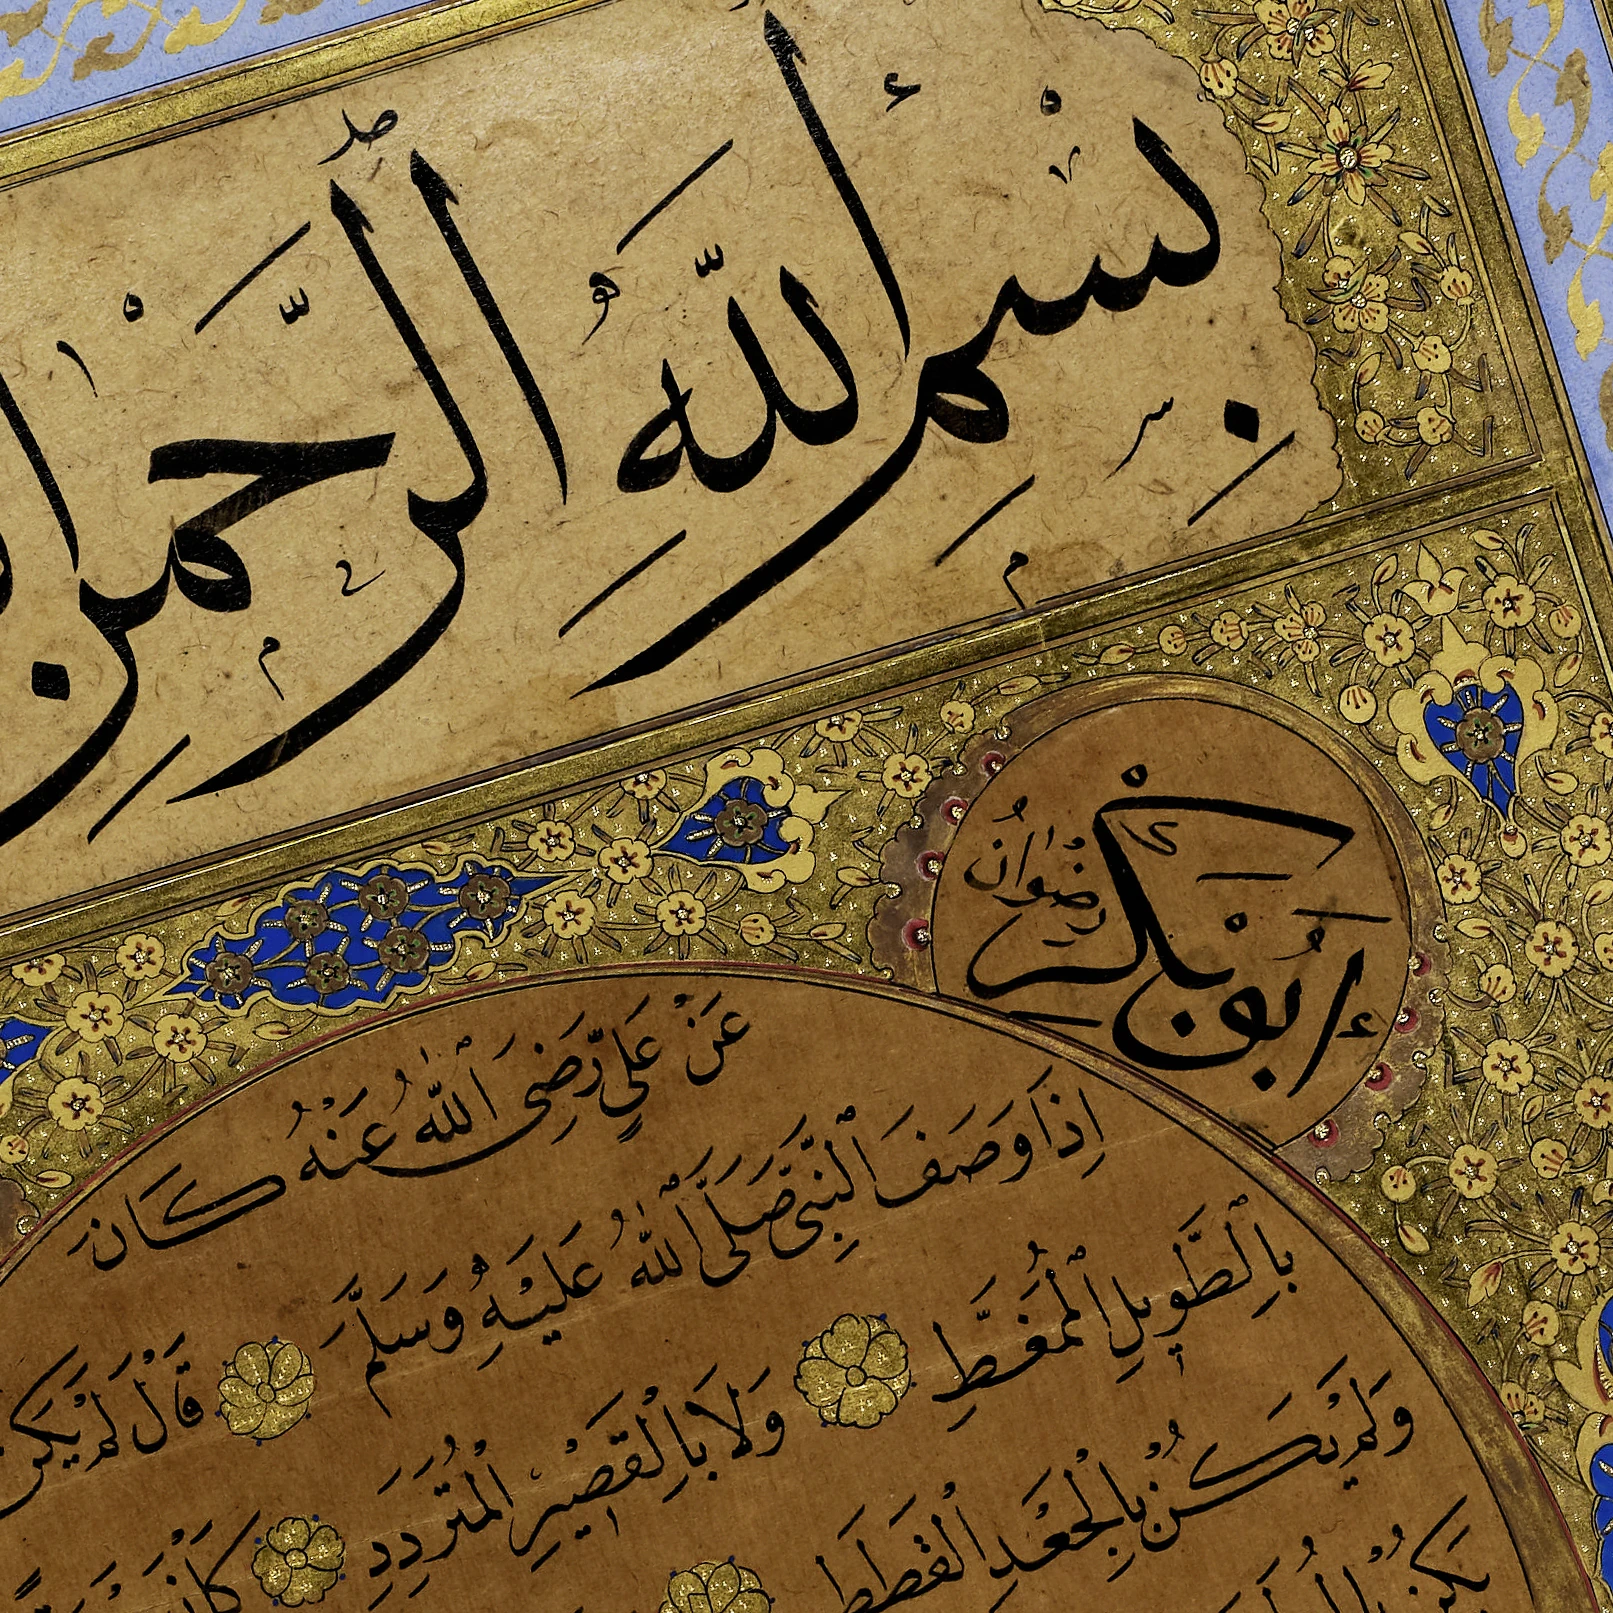 بِسْمِ اللّٰهِ الرَّحْمٰنِ
أَبُو بَكْرٍ
رِضْوَانُ
عَنْ عَلِيٍّ رَضِيَ اللّٰهُ عَنْهُ كَانَ
اِذَا وَصَفَ النَّبِيَّ صَلَّى اللّٰهُ عَلَيْهِ وَسَلَّمَ قَالَ لَمْ يَكُنْ
بِالطَّوِيلِ الْمُمَّغِطِ وَلَا بِالْقَصِيْرِ الْمُتَرَدِّدِ
وَلَمْ يَكُنْ بِالْجَعْدِ الْقَطَطِ